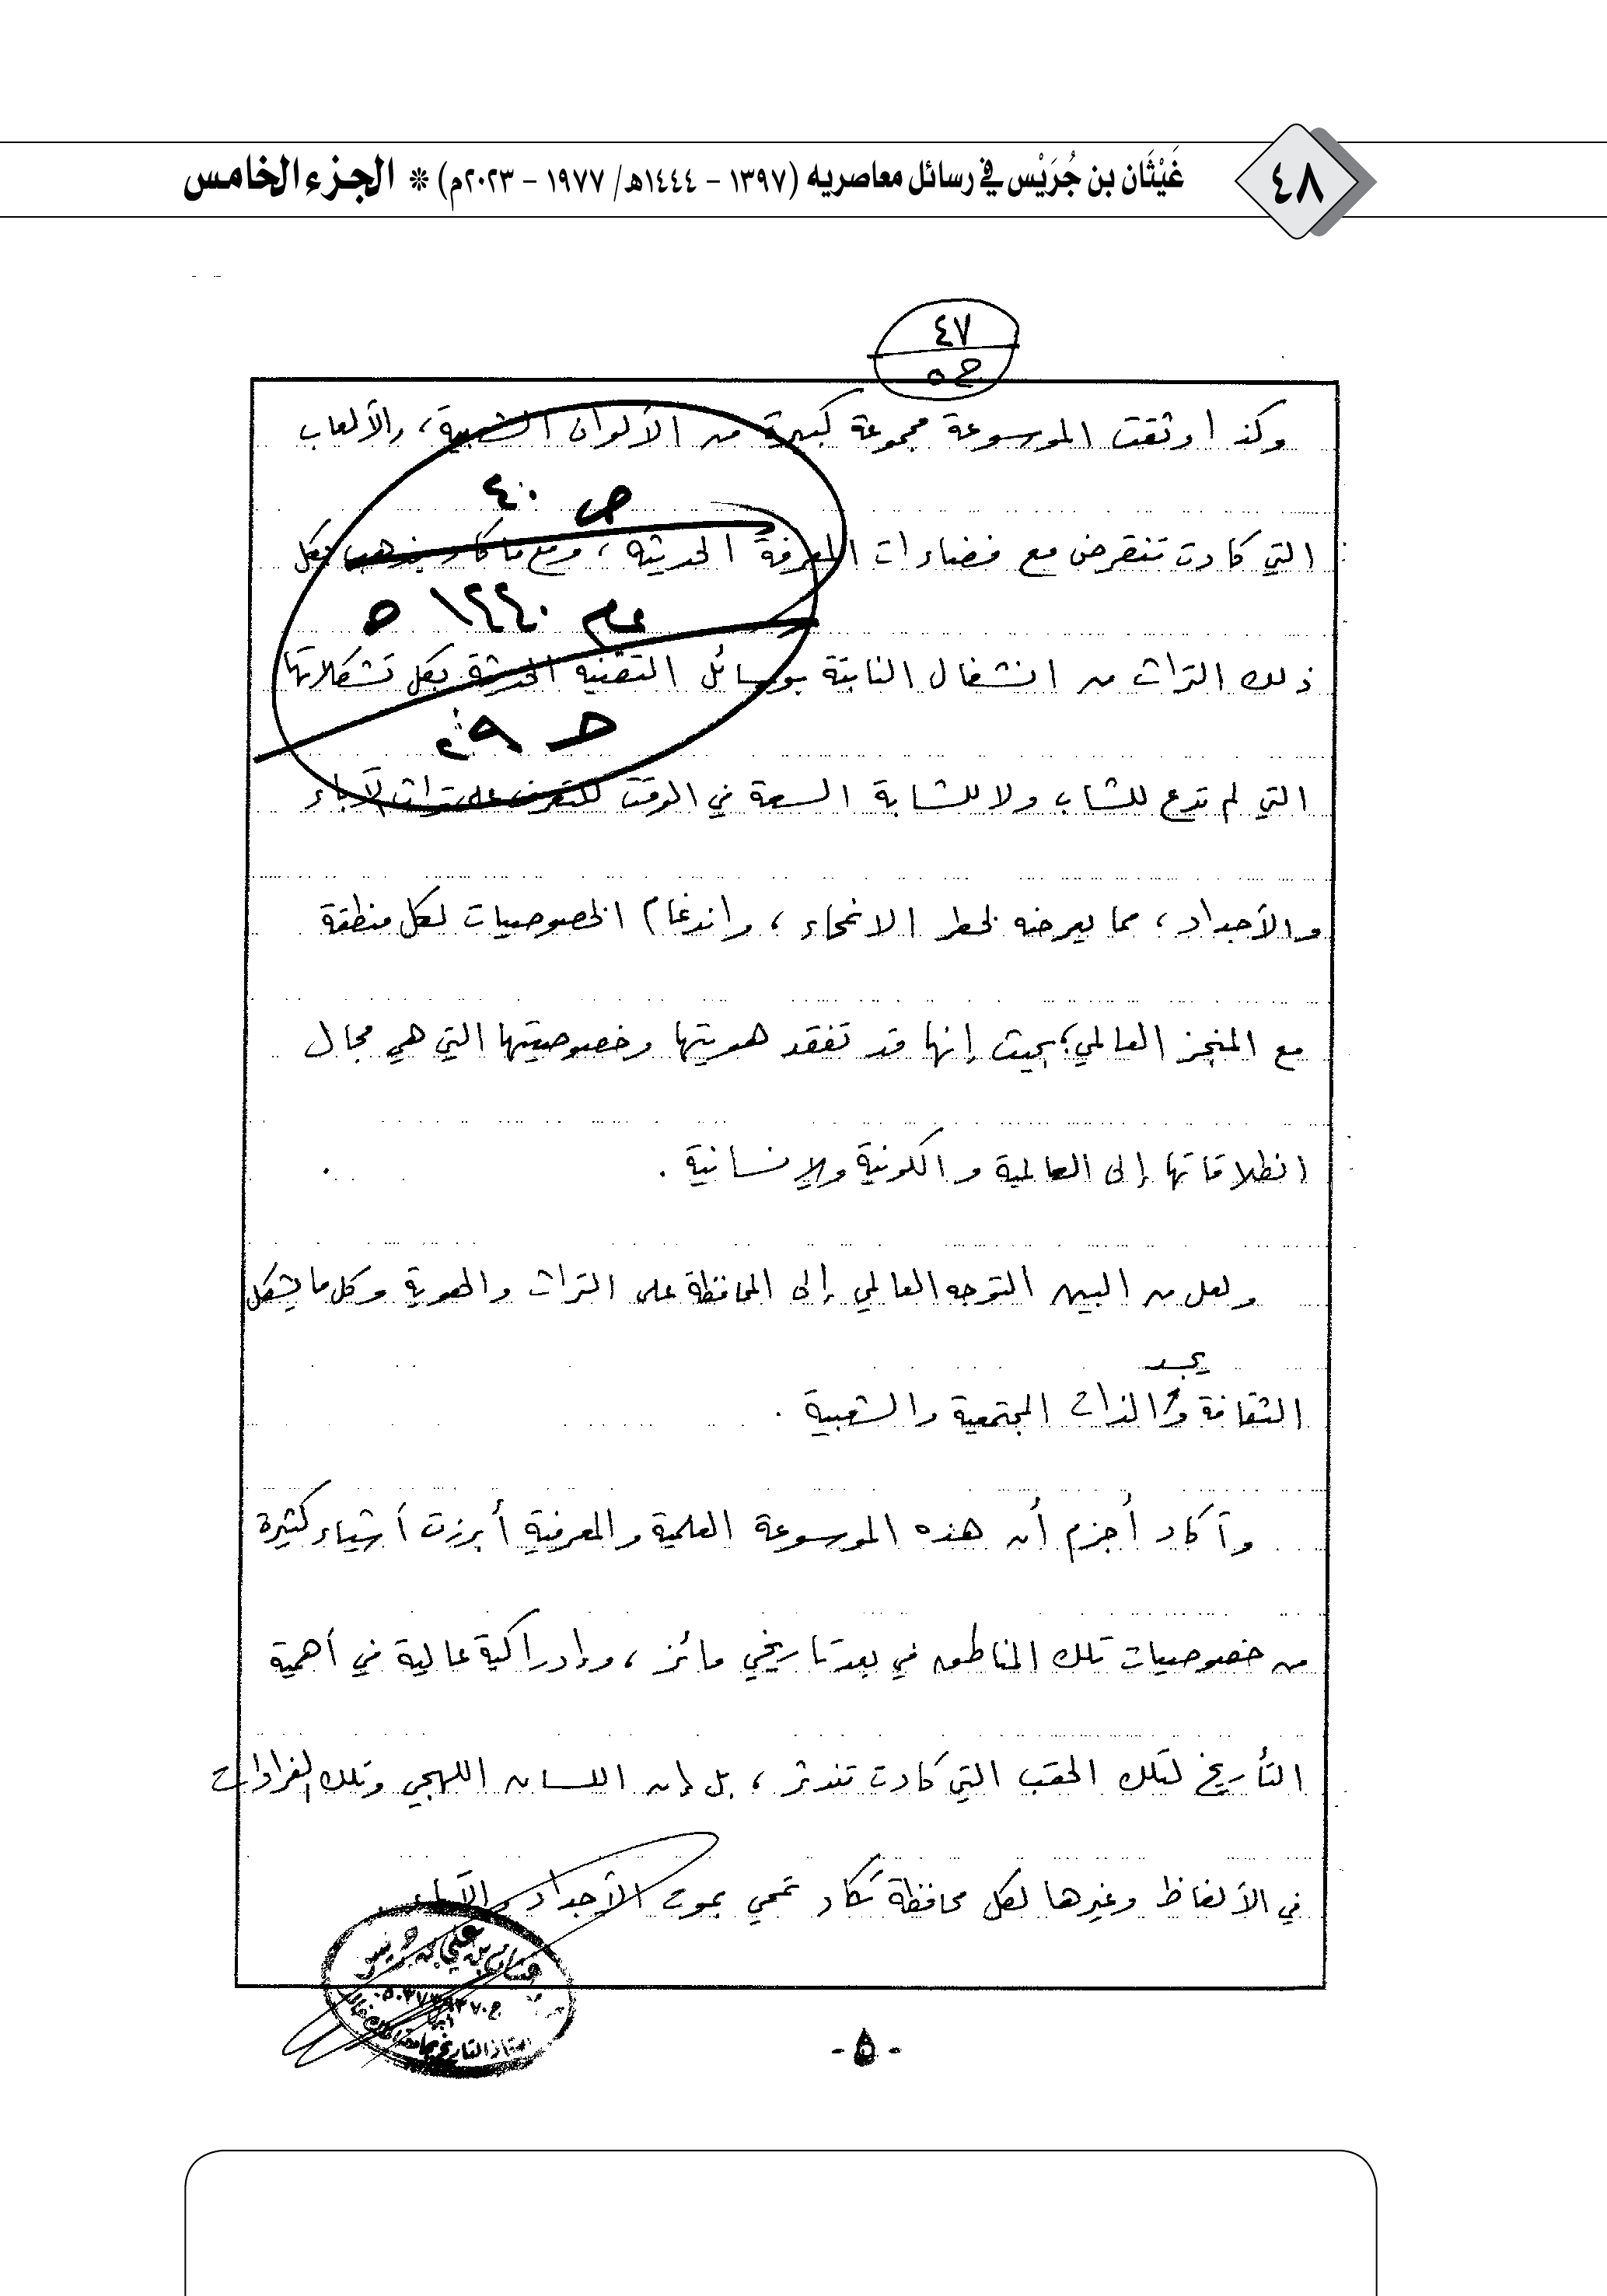 ٤٨
غَيْثَان بن جُرَيْس في رسائل معاصريه (١٣٩٧ – ١٤٤٤هـ/ ١٩٧٧ – ٢٠٢٣م) * الجزء الخامس
٤٧
ح٥
وكذا وثقت الموسوعة مجموعة كبيرة من الألوان الشعبية، والألعاب
ص ٤٠
التي كادت تنقرض مع فضاءات المعرفة الحديثة، ومع ما كاد يذهب بكل
ذلك التراث من انشغال النابتة بوسائل التقنية الحديثة بكل تشكلاتها
التي لم تدع للشاب ولا للشابة السعة في الوقت للتعرف على تراث الآباء
والأجداد، مما يعرضه لخطر الانمحاء، واندغام الخصوصيات لكل منطقة
مع المنجز العالمي؛ بحيث إنها قد تفقد هويتها وخصوصيتها التي هي مجال
انطلاقاتها إلى العالمية والكونية والإنسانية.
ولعل من البين التوجه العالمي إلى المحافظة على التراث والهوية وكل ما يشكل
الثقافة والذات المجتمعية والشعبية.
وأكاد أجزم أن هذه الموسوعة العلمية والمعرفية أبرزت أشياء كثيرة
من خصوصيات تلك المناطق في بعد تاريخي مائز، وإدراكية عالية في أهمية
التأريخ لتلك الحقب التي كادت تندثر، بل إن اللسان اللهجي وتلك الفرادات
في الألفاظ وغيرها لكل محافظة تكاد تمحي بموت الأجداد والآباء
- ٥ -